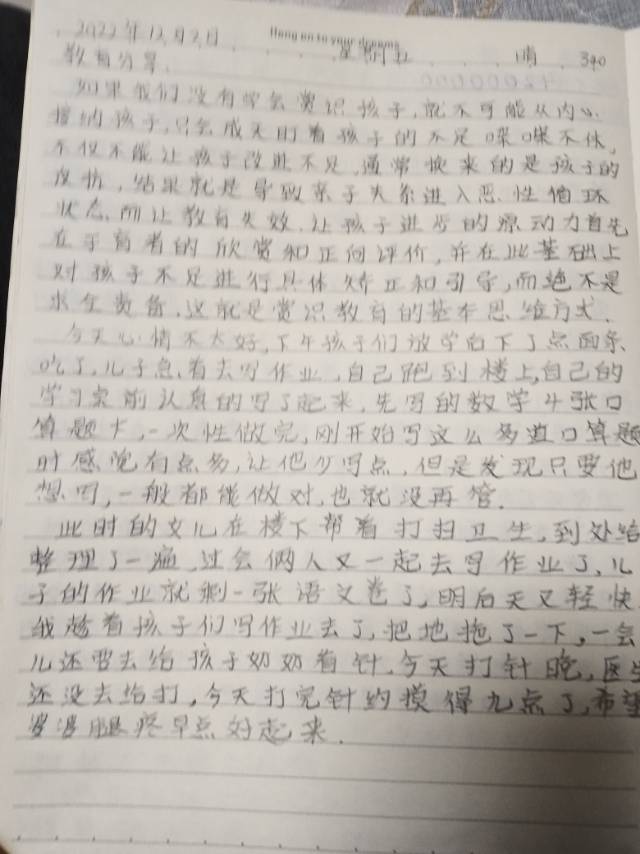 Hang on to your dreams
2022年12月2日 星期五 晴 340
教育分享.
如果我们没有学会赏识孩子,就不可能从内心
接纳孩子,只会成天盯着孩子的不足喋喋不休,
不仅不能让孩子改进不足,通常换来的是孩子的
反抗,结果就是导致亲子关系进入恶性循环
状态,而让教育失效.让孩子进步的源动力首先
在于育者的欣赏和正向评价,并在此基础上
对孩子不足进行具体矫正和引导,而绝不是
求全责备,这就是赏识教育的基本思维方式.
今天心情不太好,下午孩子们放学后下了点面条
吃了,儿子急着去写作业,自己跑到楼上,自己的
学习桌前认真的写了起来,先写的数学4张口
算题卡,一次性做完,刚开始写这么多道口算题
时感觉有点多,让他少写点,但是发现只要他
想写,一般都能做对,也就没再管.
此时的女儿在楼下帮着打扫卫生,到处给
整理了一遍,过会俩人又一起去写作业了,儿
子的作业就剩一张语文卷了,明后天又轻快
我趁着孩子们写作业去了,把地拖了一下,一会
儿还要去给孩子奶奶看针,今天打针晚,医生
还没去给打,今天打完针约摸得九点了,希望
婆婆腿疼早点好起来.